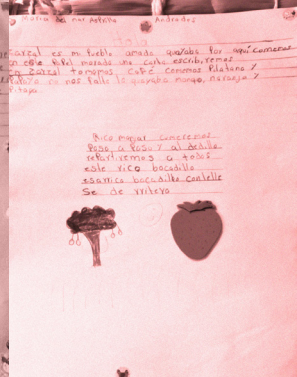 Maria de mar Andrades
Zarzal es mi pueblo amado guayaba por aquí comeras
en este Papel morado una carta escrib,remos
en Zarzal tomamos café comemos Platano y
no nos falta la guayaba mango, naranja y
Pitaya
Rico manjar comeremos
Poso a Poso y al dedillo
repartiremos a todos
este rico bocadillo
esarrico bocadillo
Se de